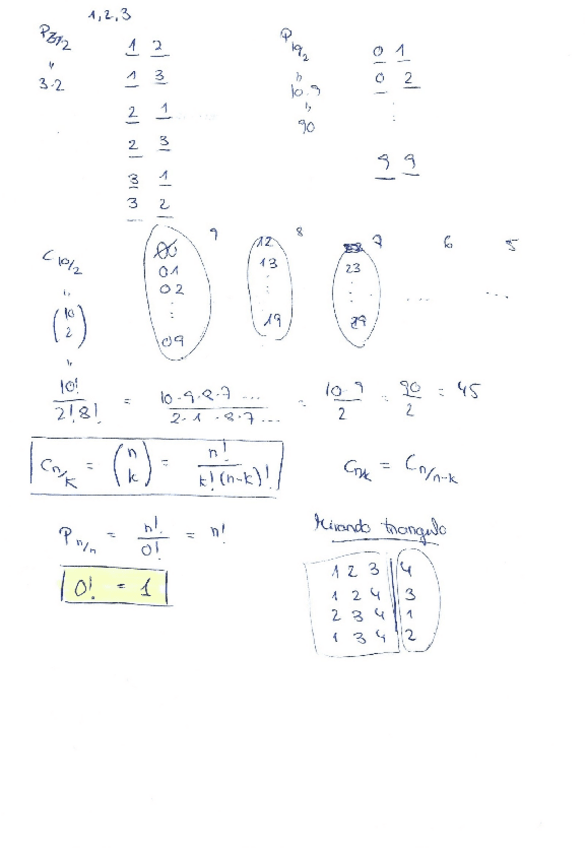 1, 2, 3
P 3/2
"
3·2
1 2
1 3
2 1
2 3
3 1
3 2
P 10/2
"
10·9
"
90
0 1
0 2
⋮
9 9
C 10/2
"
(10 2)
"
00
01
02
⋮
09
9
12
13
⋮
19
8
23
⋮
29
7
...
6
...
5
10!/2!8! = 10·9·8·7.../2·1·8·7... = 10·9/2 = 90/2 = 45
C n/k = (n k) = n!/k!(n-k)!
C n/k = C n/n-k
P n/n = n!/0! = n!
0! = 1
Mirando triangulo
1 2 3 4
1 2 4 3
2 3 4 1
1 3 4 2